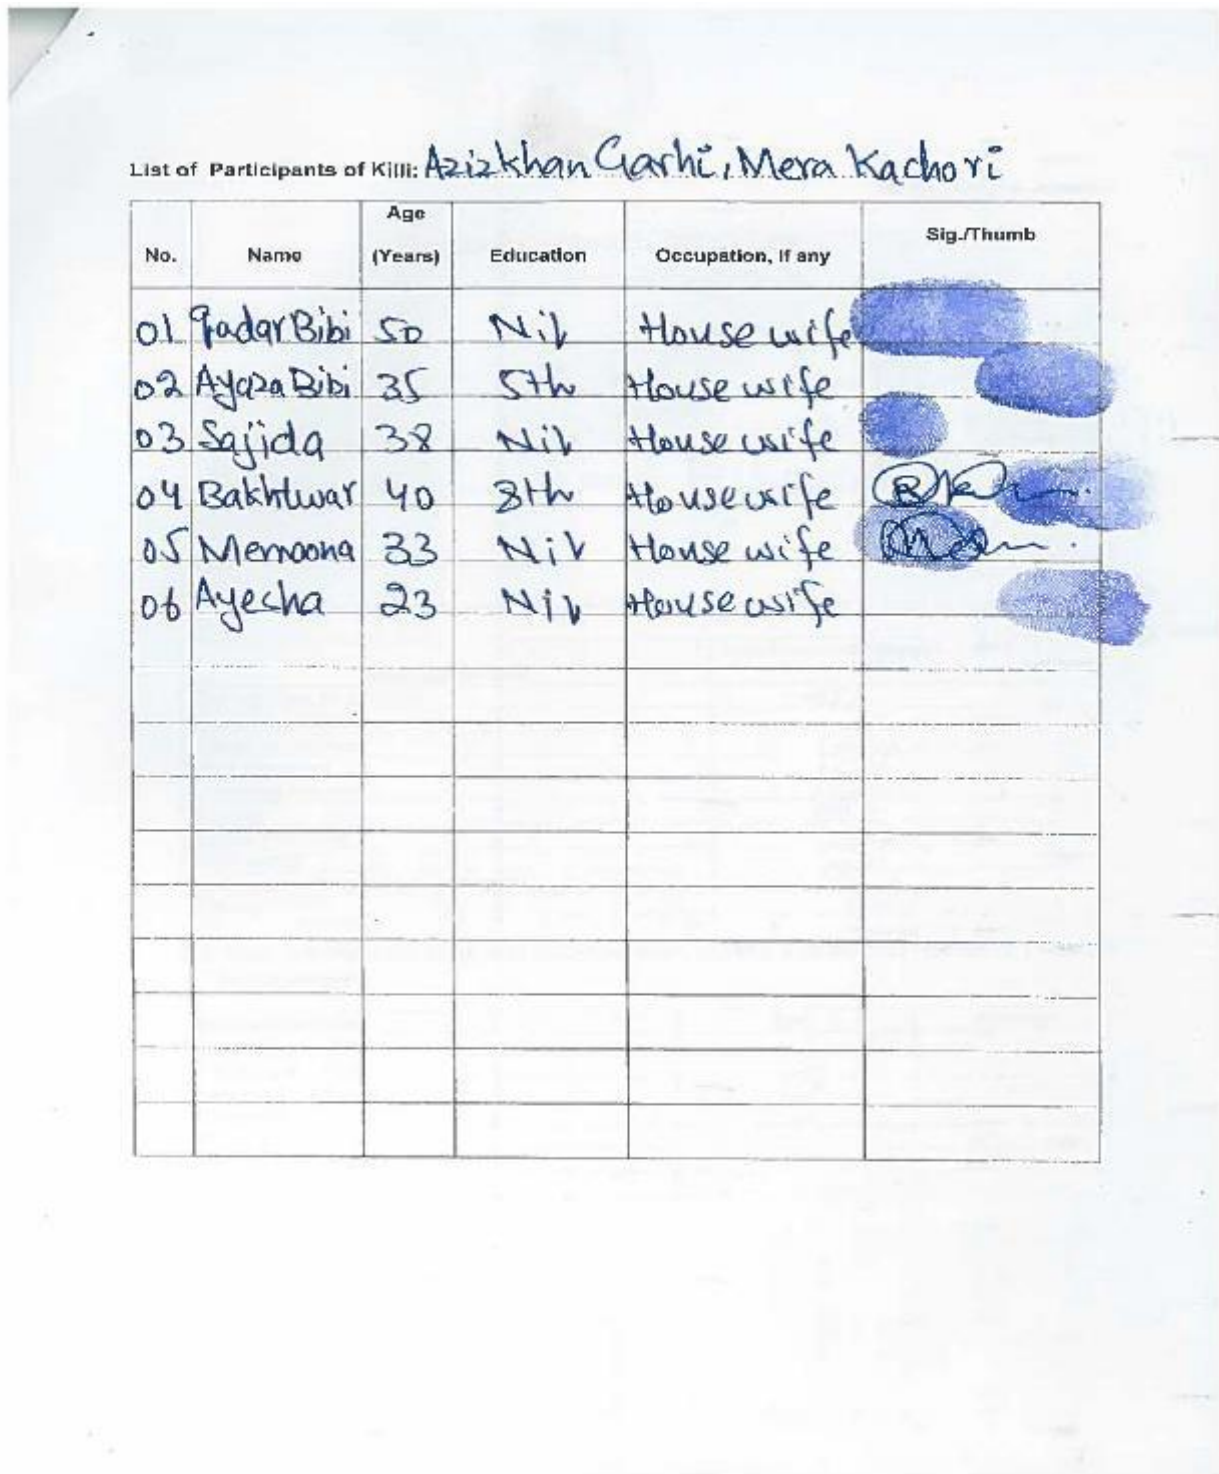 List of Participants of Killi: Azizkhan Garhi, Mera Kachori
No. Name Age (Years) Education Occupation, if any Sig./Thumb
01 Qadar Bibi 50 Nil House wife
02 Ayaza Bibi 35 5th House wife
03 Sajida 38 Nil House wife
04 Bakhtwar 40 8th House wife
05 Memoona 33 Nil House wife
06 Ayesha 23 Nil House wife